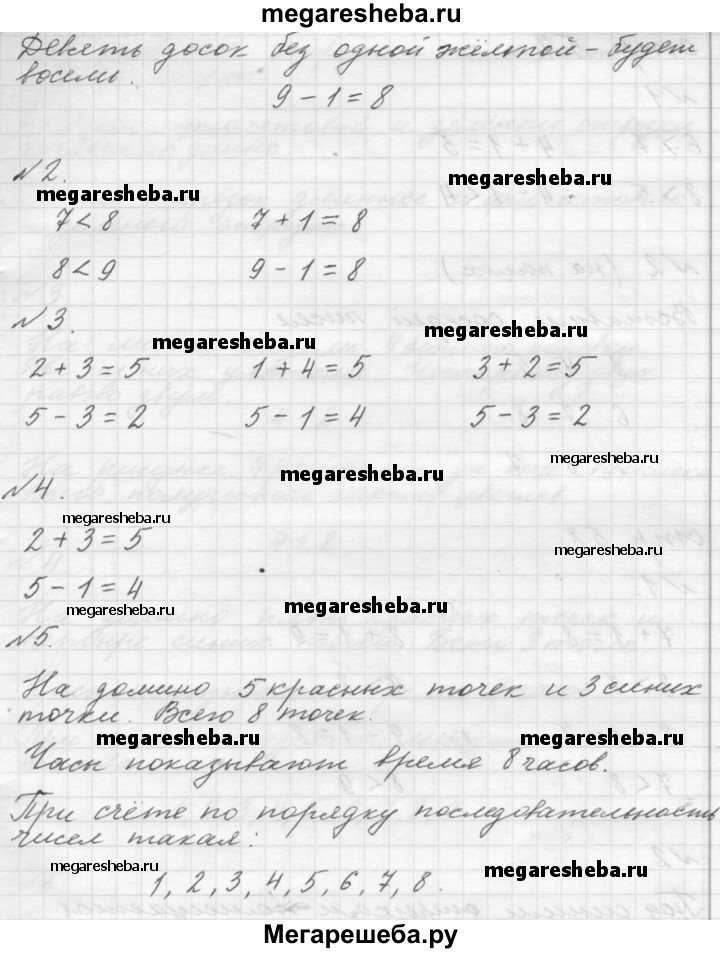 megaresheba.ru
Девять досок без одной жёлтой – будет
восемь.
9 – 1 = 8
№2.
megaresheba.ru
megaresheba.ru
7 < 8 7 + 1 = 8
8 < 9 9 – 1 = 8
№3.
megaresheba.ru
megaresheba.ru
2 + 3 = 5 1 + 4 = 5 3 + 2 = 5
5 – 3 = 2 5 – 1 = 4 5 – 3 = 2
megaresheba.ru
№4.
megaresheba.ru
2 + 3 = 5
megaresheba.ru
5 – 1 = 4
megaresheba.ru
megaresheba.ru
№5.
На домино 5 красных точек и 3 синих
точки. Всего 8 точек.
megaresheba.ru
megaresheba.ru
Часы показывают время 8 часов.
При счёте по порядку последовательность
чисел такая:
megaresheba.ru
megaresheba.ru
1, 2, 3, 4, 5, 6, 7, 8.
Мегарешеба.ру